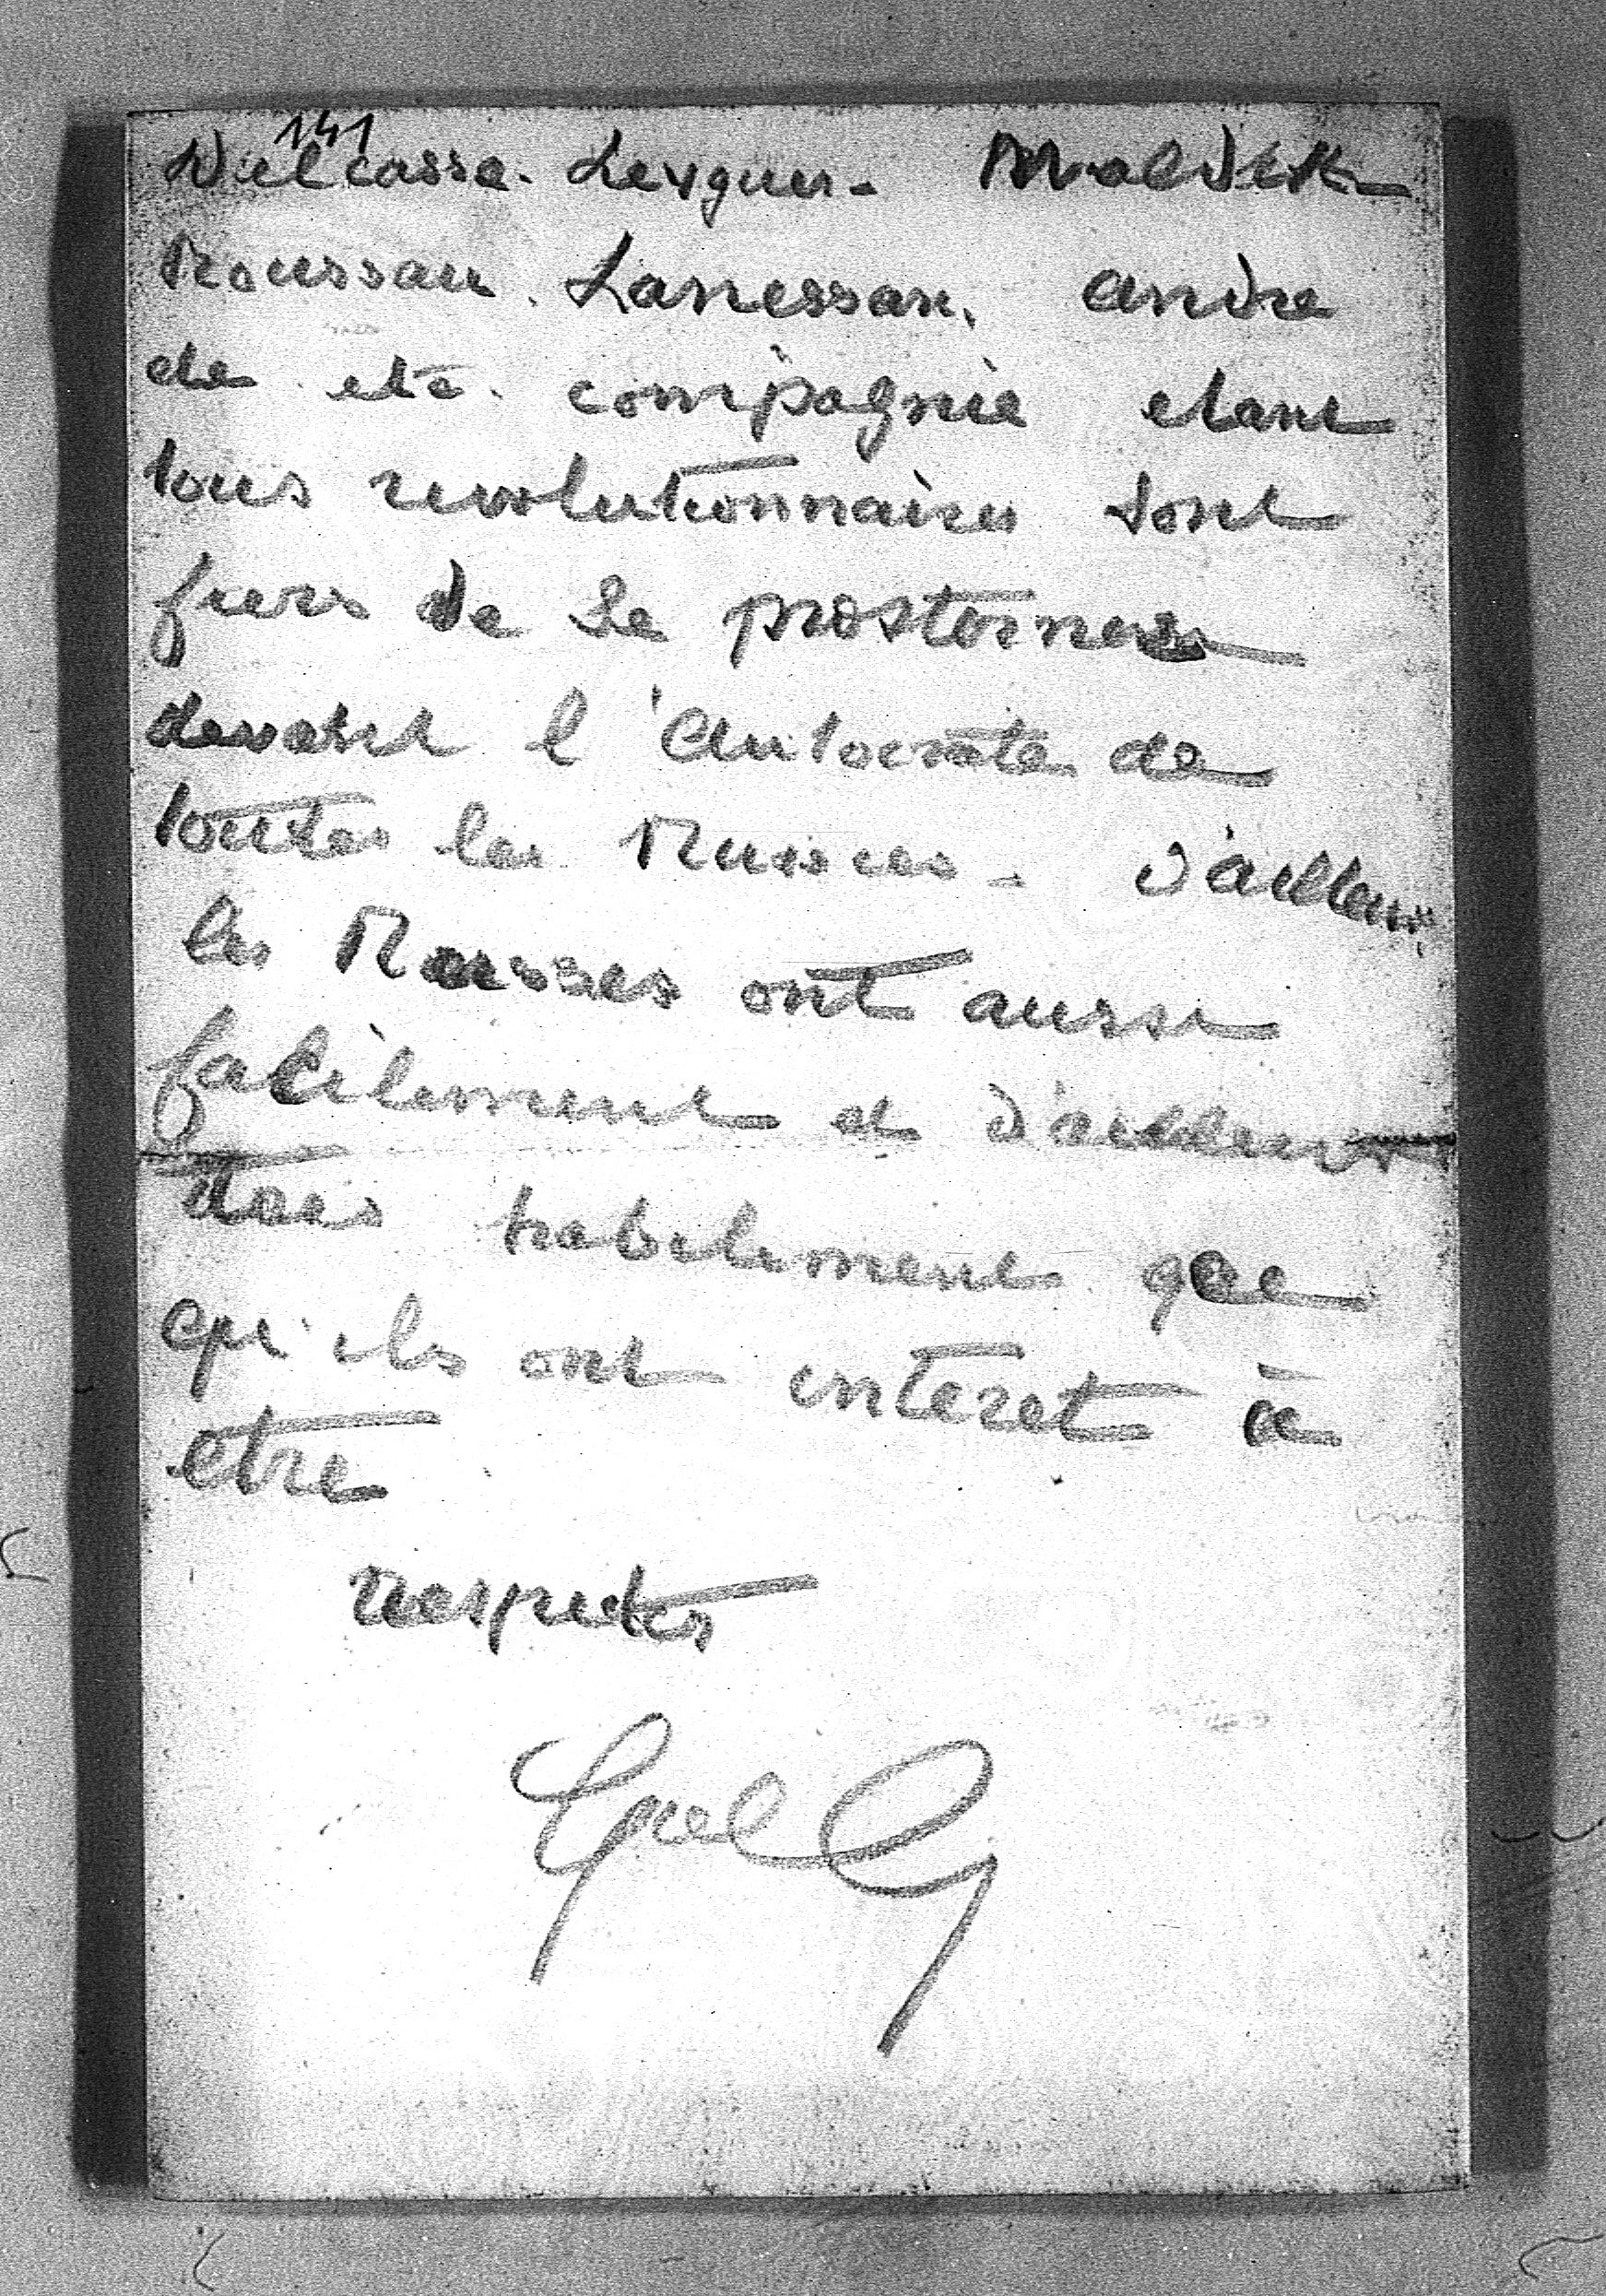 141
Delcasse. Leygues. Waldeck
Roussau. Lanessan. andre
de etc. compagnie etant
tous revolutionnaires sont
fiers de se prosterner
devant l'Autocrate de
toutes les Russies. d'ailleurs
les Russes ont aussi
facilement et d'ailleurs
tres habilement
qu'ils ont interet à
etre
respectes